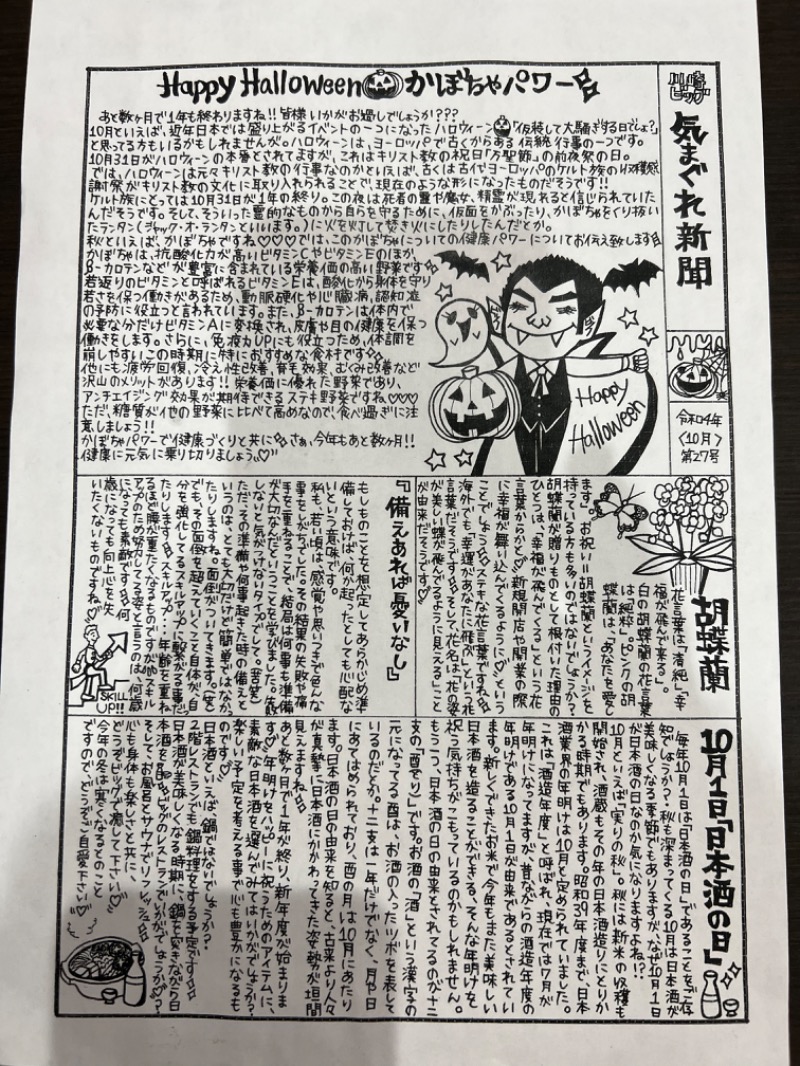 Happy Halloween かぼちゃパワー
ビッグ
気まぐれ新聞
令和4年
〈10月〉
第27号
あと数ヶ月で1年も終わりますね!!皆様いかがお過しでしょうか???
10月といえば、近年日本では盛り上がるイベントの一つになったハロウィーン「仮装して大騒ぎする日でしょ?」
と思ってる方もいるかもしれませんが。ハロウィーンは、ヨーロッパで古くからある伝統行事の一つです。
10月31日がハロウィーンの本番とされてますが、これはキリスト教の祝日「万聖節」の前夜祭の日。
では、ハロウィーンは元々キリスト教の行事なのかといえば、古くは古代ヨーロッパのケルト族の収穫感
謝祭がキリスト教の文化に取り入れられることで、現在のような形になったものだそうです!!
ケルト族にとっては10月31日が1年の終り。この夜は死者の霊や魔女、精霊が現れると信じられていた
んだそうです。そして、そういった霊的なものから自らを守るために、仮面をかぶったり、かぼちゃをくり抜い
たランタン(ジャック・オ・ランタンといいます。)に火を灯して焚き火にしたりしたんだとか。
秋といえば、かぼちゃですね♡♡♡では、このかぼちゃについての健康パワーについてお伝え致します
かぼちゃは、抗酸化力が高いビタミンCやビタミンEのほか、
β-カロテンなどが豊富に含まれている栄養価の高い野菜です
若返りのビタミンと呼ばれるビタミンEは、酸化から身体を守り
若さを保つ働きがあるため、動脈硬化や心臓病、認知症
の予防に役立つと言われています。また、β-カロテンは体内で
必要な分だけビタミンAに変換され、皮膚や目の健康を保つ
働きをします。さらに、免疫力UPにも役立つため、体調を
崩しやすいこの時期に特におすすめな食材です
他にも疲労回復、冷え性改善、育毛効果、むくみ改善など
沢山のメリットがあります!!栄養価に優れた野菜であり、
アンチエイジング効果が期待できるステキ野菜ですね♡♡♡
ただ、糖質が他の野菜に比べて高めなので、食べ過ぎに注
意しましょう!!
かぼちゃパワーで健康づくりと共に さぁ、今年もあと数ヶ月!!
健康に元気に乗り切りましょう♡
Happy
Halloween
胡蝶蘭
花言葉は「清純」「幸
福が飛んで来る」。
白の胡蝶蘭の花言葉
は「純粋」。ピンクの胡
蝶蘭は「あなたを愛し
ます」。お祝い=胡蝶蘭というイメージを
持っている方も多いのではないでしょうか?
胡蝶蘭が贈りものとして根付いた理由の
ひとつは、「幸福が飛んでくる」という花
言葉からかと♡新規開店や開業の際
に幸福が舞い込んでくるように♡という
ことでしょう ステキな花言葉ですね
海外でも「幸運があなたに飛ぶ」という花
言葉だそうです そして、花名は「花の姿
が美しい蝶が飛んでるように見える」こと
が由来だそうです♡
『備えあれば憂いなし』
もしものことを想定してあらかじめ準
備しておけば、何が起ったとしても心配な
いという意味です。
私も、若い頃は、感覚や思いつきで色んな
事をしがちでした。その結果の失敗や痛
手を重ねることで、結局は何事も準備
が大切なんだということを学びました。失敗
しないと気がつけないタイプでして。(苦笑)
ただ、その準備や何事か起きた時の備えと
いうのは、とても大切だけど簡単ではなか
ったりしますね。面倒がついてきます。(笑)
でも、その面倒を超えていくこと自体が、自
分を強化してるスキルアップに繋がる事だっ
たりします スキルアップ…年齢を重ね
るほど腰が重たくなるものですがスキル
アップのため努力してる姿と言うのは、何歳
になっても素敵です 何
歳になっても向上心を失
いたくないものですね♡
SKILL
UP!!
10月1日「日本酒の日」
毎年10月1日は「日本酒の日」であることをご存
知でしょうか?秋も深まってくる10月は日本酒が
美味しくなる季節でもありますが、なぜ10月1日
が日本酒の日なのか気になりますよね!?
10月といえば「実りの秋」。秋には新米の収穫も
開始され、酒蔵もその年の日本酒造りにとりか
かる時期でもあります。昭和39年度まで、日本
酒業界の年明けは10月と定められていました。
これは「酒造年度」と呼ばれ、現在では7月が
年明けになってますが、昔ながらの酒造年度の
年明けである10月1日が由来であるとされてい
ます。新しくできたお米で今年もまた美味しい
日本酒を造ることができる、そんな年明けを
祝う気持ちがこもっているのかもしれません。
もう一つ、日本酒の日の由来とされてるのが十二
支の「酉(とり)」です。お酒の「酒」という漢字の
元になってる酉は、お酒の入ったツボを表して
いるのだとか。十二支は、年だけでなく、月や日
にあてはめられており、酉の月は10月にあたり
ます。日本酒の日の由来を知ると、古来より人々
が真摯に日本酒にかかわってきた姿勢が垣間
見えますね
あと数ヶ月で1年が終り、新年度が始まりま
す♡年明けをハッピーに祝うためのアイテムに、
素敵な日本酒を選んでみてはいかがでしょうか?
楽しい予定を考える事で心も豊かになるも
のです♡
日本酒といえば、鍋ではないでしょうか?
2階レストランでも鍋料理をする予定です
日本酒が美味しくなる時期に、鍋を突きながら日
本酒を ビッグのレストランでいかがでしょうか?
そして、お風呂とサウナでリフレッシュ
心も身体も楽しさと共に、
どうぞビッグで癒して下さい♡
今年の冬は寒くなるとのこと
ですので、どうぞご自愛下さい♡